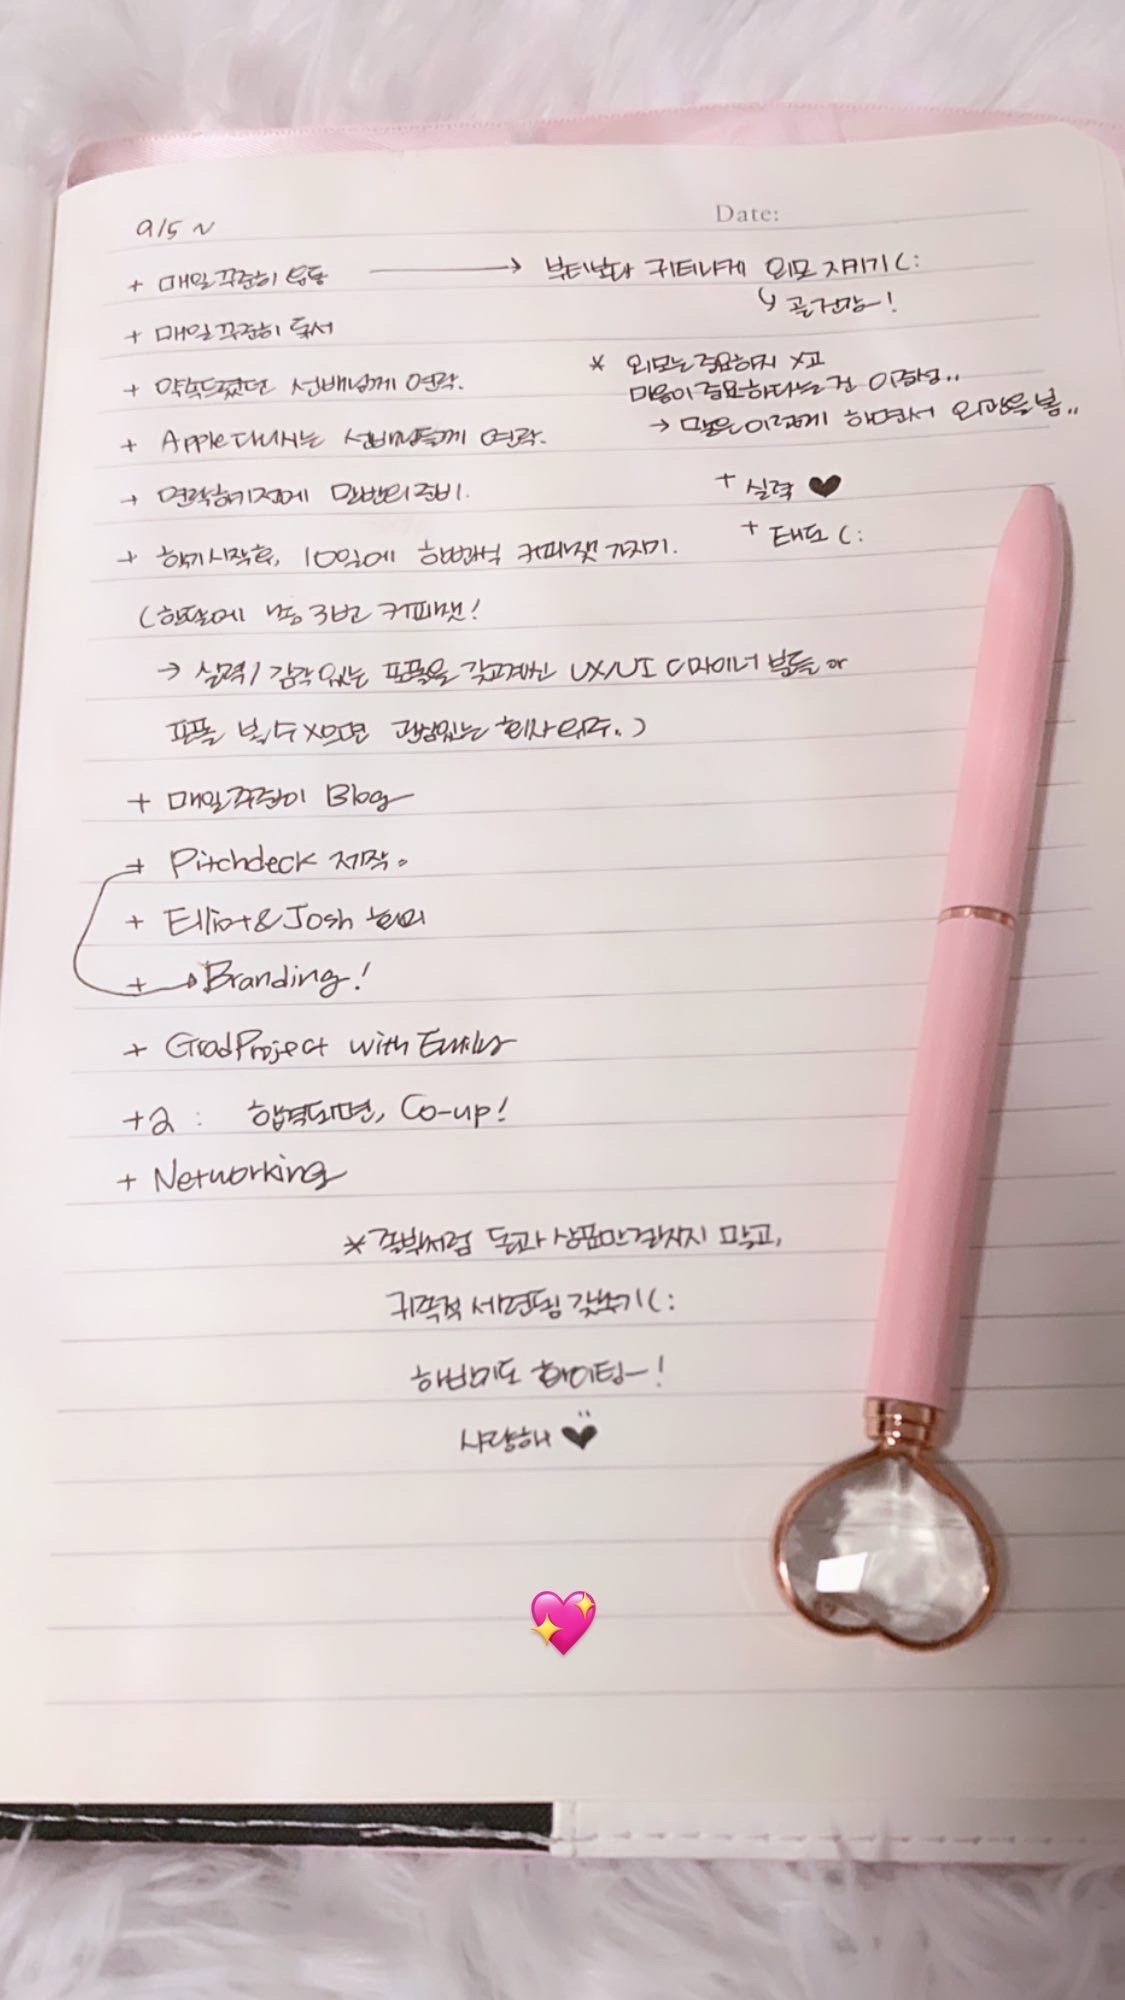 9/5 ~
Date:
+ 매일 꾸준히 운동 → 뷰티보다 귀티나게 외모 지키기 (:
↳ 곧 건강~!
+ 매일 꾸준히 독서
* 외모는 중요하지 X고
마음이 중요하다는건 이중성..
→ 말은 이렇게 하면서 외관을 봄..
+ 약속드렸던 선배님께 연락.
+ Apple 다니시는 선배님들께 연락.
+ 실력 ♥
→ 연락하기전에 만반의 준비.
+ 태도 (:
+ 학기시작후, 10일에 한번씩 커피챗 가지기.
(한달에 총 3번 커피챗!
→ 실력/감각있는 포폴을 갖고계신 UX/UI 디자이너 분들 or
포폴 볼 수 X으면 관심있는 회사 위주.)
+ 매일 꾸준히 Blog
+ Pitchdeck 제작.
+ Elliot&Josh 회의
+ → Branding!
+ GradProject with Emily
+2 : 합격되면, Co-up!
+ Networking
* 졸부처럼 돈과 상품만 걸치지 말고,
귀족적 세련됨 갖추기 (:
해범미도 화이팅~!
사랑해 ♥